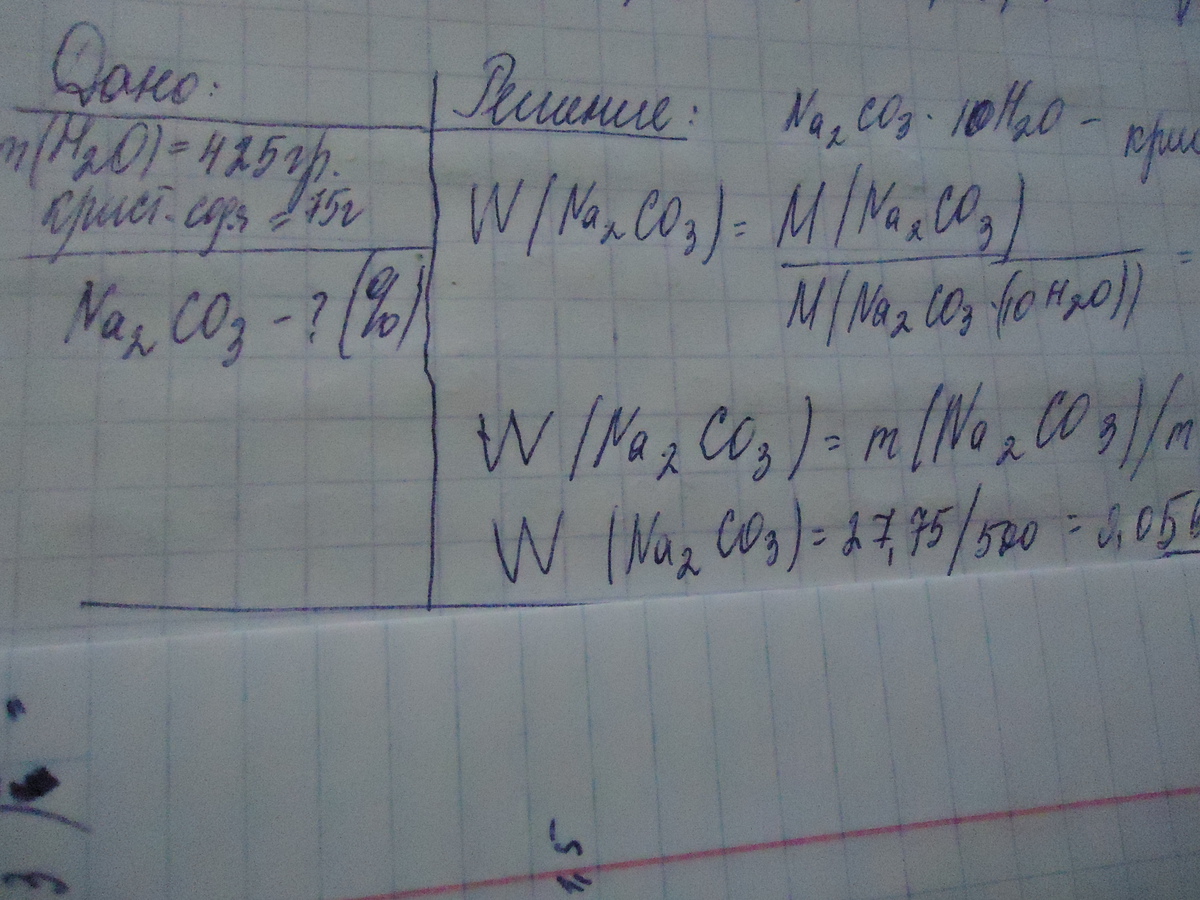 Дано:
m(H₂O) = 425 гр.
крист. соды = 75г
Na₂CO₃ - ? (%)
Решение: Na₂CO₃ · 10H₂O -
W(Na₂CO₃) = M(Na₂CO₃)
M(Na₂CO₃·(10H₂O)) =
W (Na₂CO₃) = m(Na₂CO₃)/m
W (Na₂CO₃) = 27,75/500 = 0,056
1,5